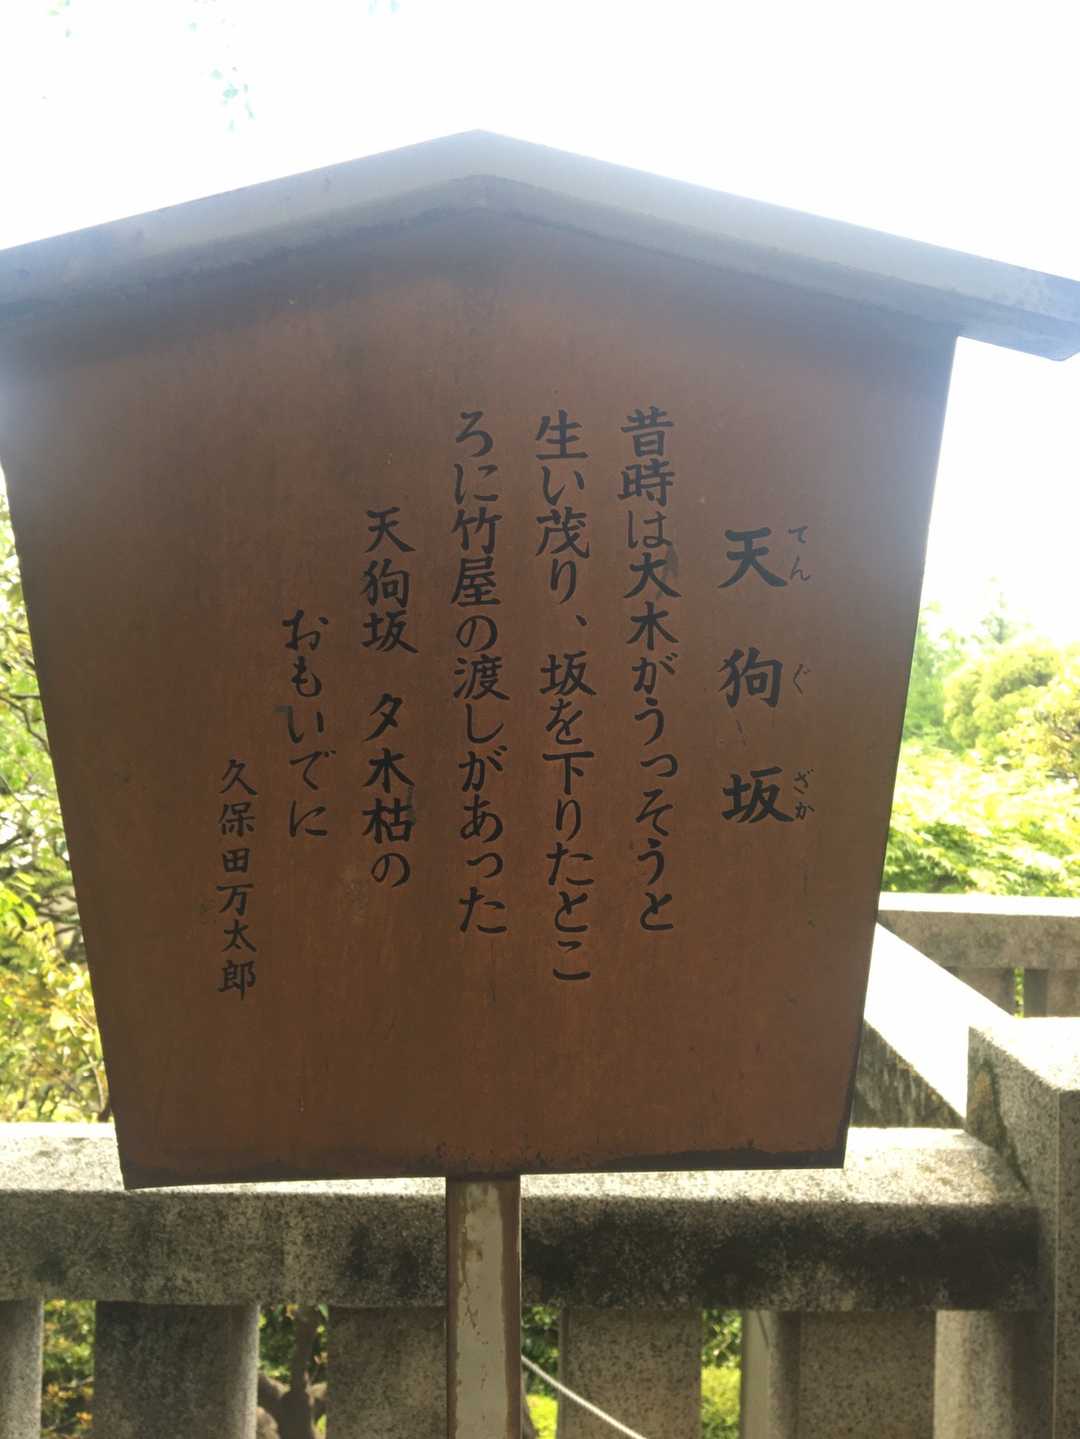 天狗坂
てんぐざか
昔時は大木がうっそうと
生い茂り、坂を下りたとこ
ろに竹屋の渡しがあった
天狗坂 夕木枯の
おもいでに
久保田万太郎